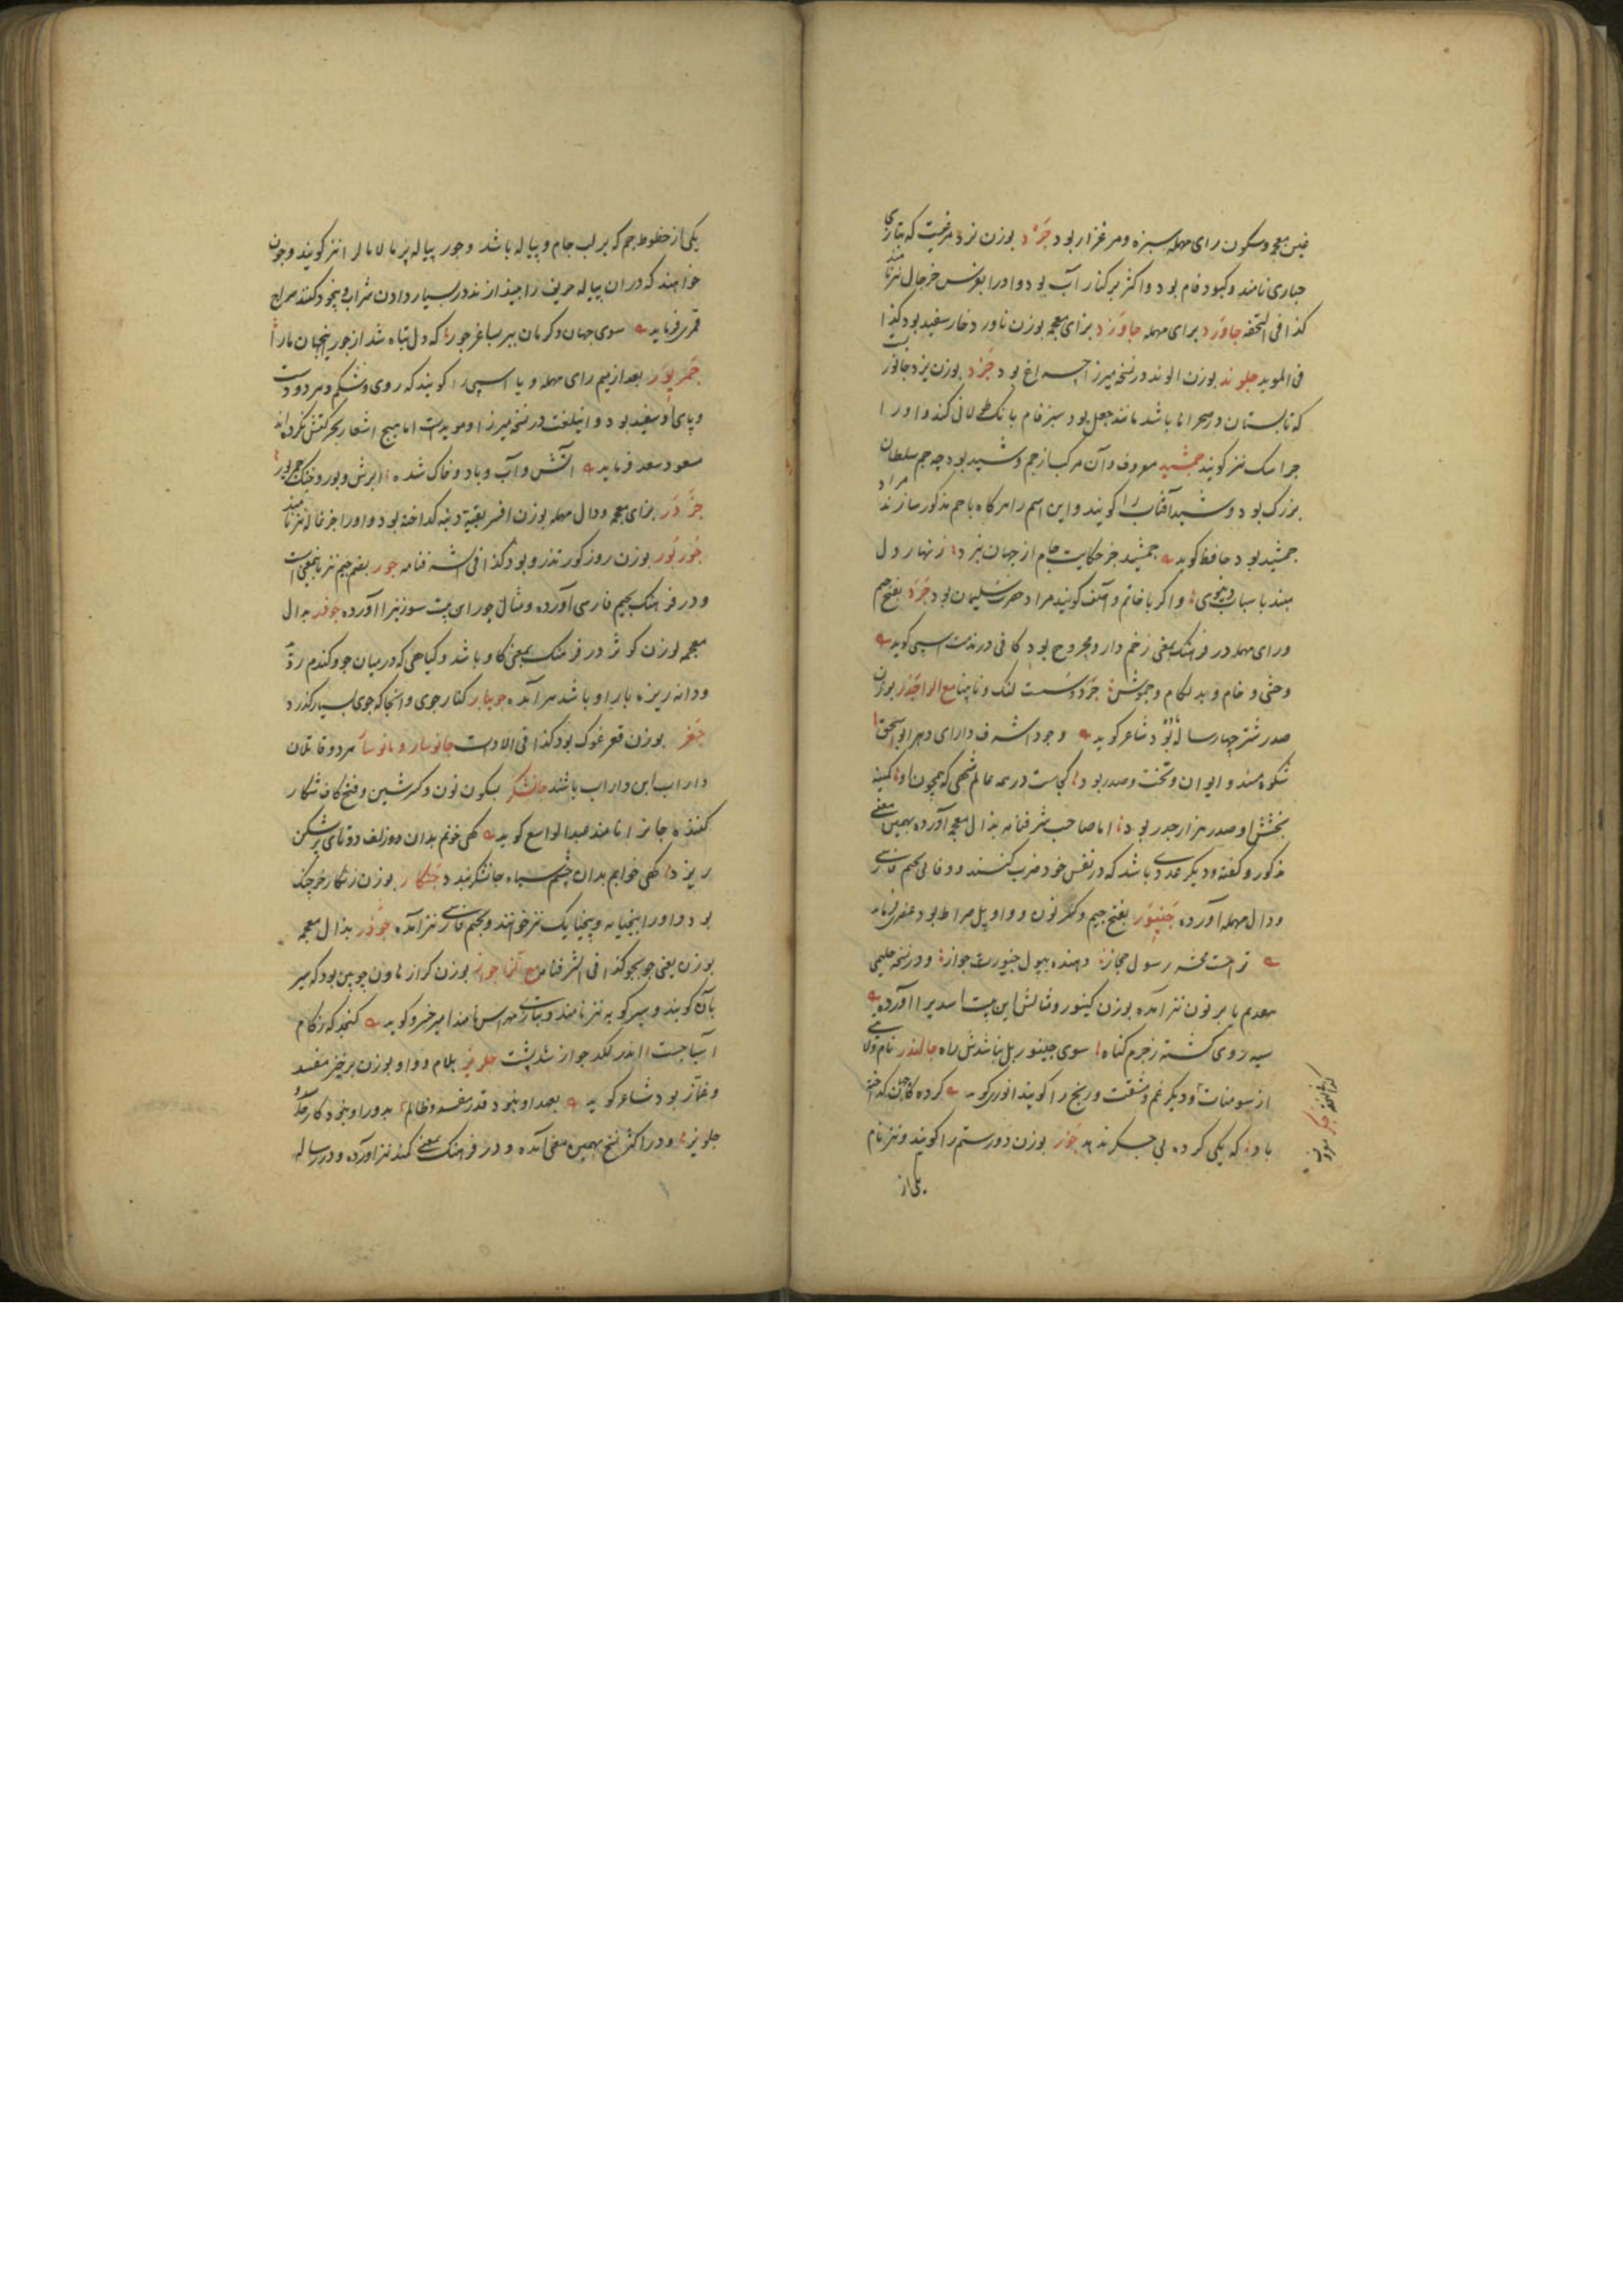 غین معجمه و سکون رای مهمله سبزه و مرغزار بود جرد بوزن نرد مرغیست که بتازی
حباری نامند و کبود فام بود و اکثر بر کنار آب بود و او را بعوض خرجال نیز نامند
کذا فی التحفه جاورد برای مهمله جاوزد بزای معجمه بوزن ناورد خار سفید بود کذا
فی الموید جلوند بوزن الوند در نسخه میرزا چراغ بود جزد بوزن یزد جانوریست
که تابستان در صحراها باشد مانند جعل بود سبز فام بانک طولانی کند و او را
جراسک نیز کویند جمشید معروف و آن مرکب از جم و شید بود چه جم سلطان
بزرک بود و شید آفتاب را کویند و این اسم را هرکاه با جم مذکور سازند مراد
جمشید بود حافظ کوید جمشید جز حکایت جام از جهان نبرد زنهار دل
مبند با سباب دنیوی و اکر با خاتم و آصف کویند مراد حضرت سلیمان بود جرد بفتح جیم
و رای مهمله در فرهنک بمعنی زخم دار و مجروح بود کافی در مذمت اسپی کوید
وحشی و خام و بد لکام و جموش جرد و سست لنک و نابینا مع الرا جذر بوزن
صدر شتر چهار ساله بود شاعر کوید وجود اشرف دارای دهر ابو اسحق
شکوه مسند و ایوان و تخت و صدر بود کجاست در همه عالم شهی که همچون او کمینه
بخشش او صد هزار جدر بود اما صاحب شرفنامه بذال معجمه آورده بهمین معنی
مذکور و کفته و دیکر عددی باشد که در نفس خود ضرب کنند و وفایی بجیم فارسی
و دال مهمله آورده جینور بفتح جیم و کسر نون و واو پل صراط بود عنصری فرماید
تراست محشر رسول حجاز دهنده بپول چینور جواز و در نسخه حلیمی
بتقدیم یا بر نون نیز آمده بوزن کینور و مثالش این بیت اسدی را آورده
سیه روی کشته ز جرم کناه سوی جینور پل نباشدش راه جالندر نام ولایتی
از سومنات و دیکر غم و مشقت و رنج را کویند انوری کوید کرده
باد که یکی کرده بی جکرند جور بوزن دور ستم را کویند و نیز نام
یکی از
یکی از خطوط جم که بر لب جام و پیاله باشد و جور پیاله پر مالامال را نیز کویند و چون
خواهند که در آن پیاله حریف را بیندازند در بسیار دادن شراب و بیخود کنند سراج
قمری فرماید سوی جهان و کرمان ببر ساغر جور که دل تباه شد از جور اینجهان ما را
جمریور بعد از میم رای مهمله و یا اسپی را کویند که روی و شکم و هر دو دست
و پای او سفید بود و اینلغت در نسخه میرزا و موید است اما هیچ اشعار بحرکتش نکرده‌اند
مسعود سعد فرماید آتش و آب و باد و خاک شده ابرش و بور و خنک جمریور
جزدر بزای معجمه و دال مهمله بوزن افسر بقیه دنبه کداخته بود و او را جزغاله نیز نامند
جوربور بوزن روزکور تذرو بود کذا فی الشرفنامه جور بضم جیم نیز باینمعنی است
و در فرهنک بجیم فارسی آورده و مثال جور این بیت سوزنی را آورده جوذر بذال
معجمه بوزن کوثر در فرهنک بمعنی کاو باشد و کیاهی که در میان جو و کندم روید
و دانه ریزه بار او باشد هر آمده جویبار کنار جوی و آنجا که جوی بسیار کذرد
جغر بوزن قعر غوک بود کذا فی الادات جانوسار و مانوسار هر دو قاتلان
داراب ابن داراب باشند جانشکر بسکون نون و کسر شین و فتح کاف شکار
کننده جانرا نامند عبدالواسع کوید کهی خونم بدان دو زلف دوتای پرشکن
ریزد کهی خواهم بدان چشم سیاه جانشکر بندد جنکار بوزن زنکار خرچنک
بود و او را پنجپایه و پنجپایک نیز خوانند و بجیم فارسی نیز آمده جوذر بذال معجمه
بوزن یعنی جو بجو کذا فی الشرفنامه مع الزا جواز بوزن کراز هاون چوبین بود که سیر
بآن کوبند و سیرکوبه نیز نامند و بتازی مهراس نامند امیر خسرو کوید کنجد که ز کام
آسیا جست اندر لکد جواز شد پست جلویز بلام و واو بوزن برخیز مفسد
و غماز بود شاعر کوید بعهد او نبود قدر مفسد و ظالم بدور او نبود کار
جلویز و در اکثر نسخ بهمین معنی آمده و در فرهنک بمعنی کمند نیز آورده و در رساله